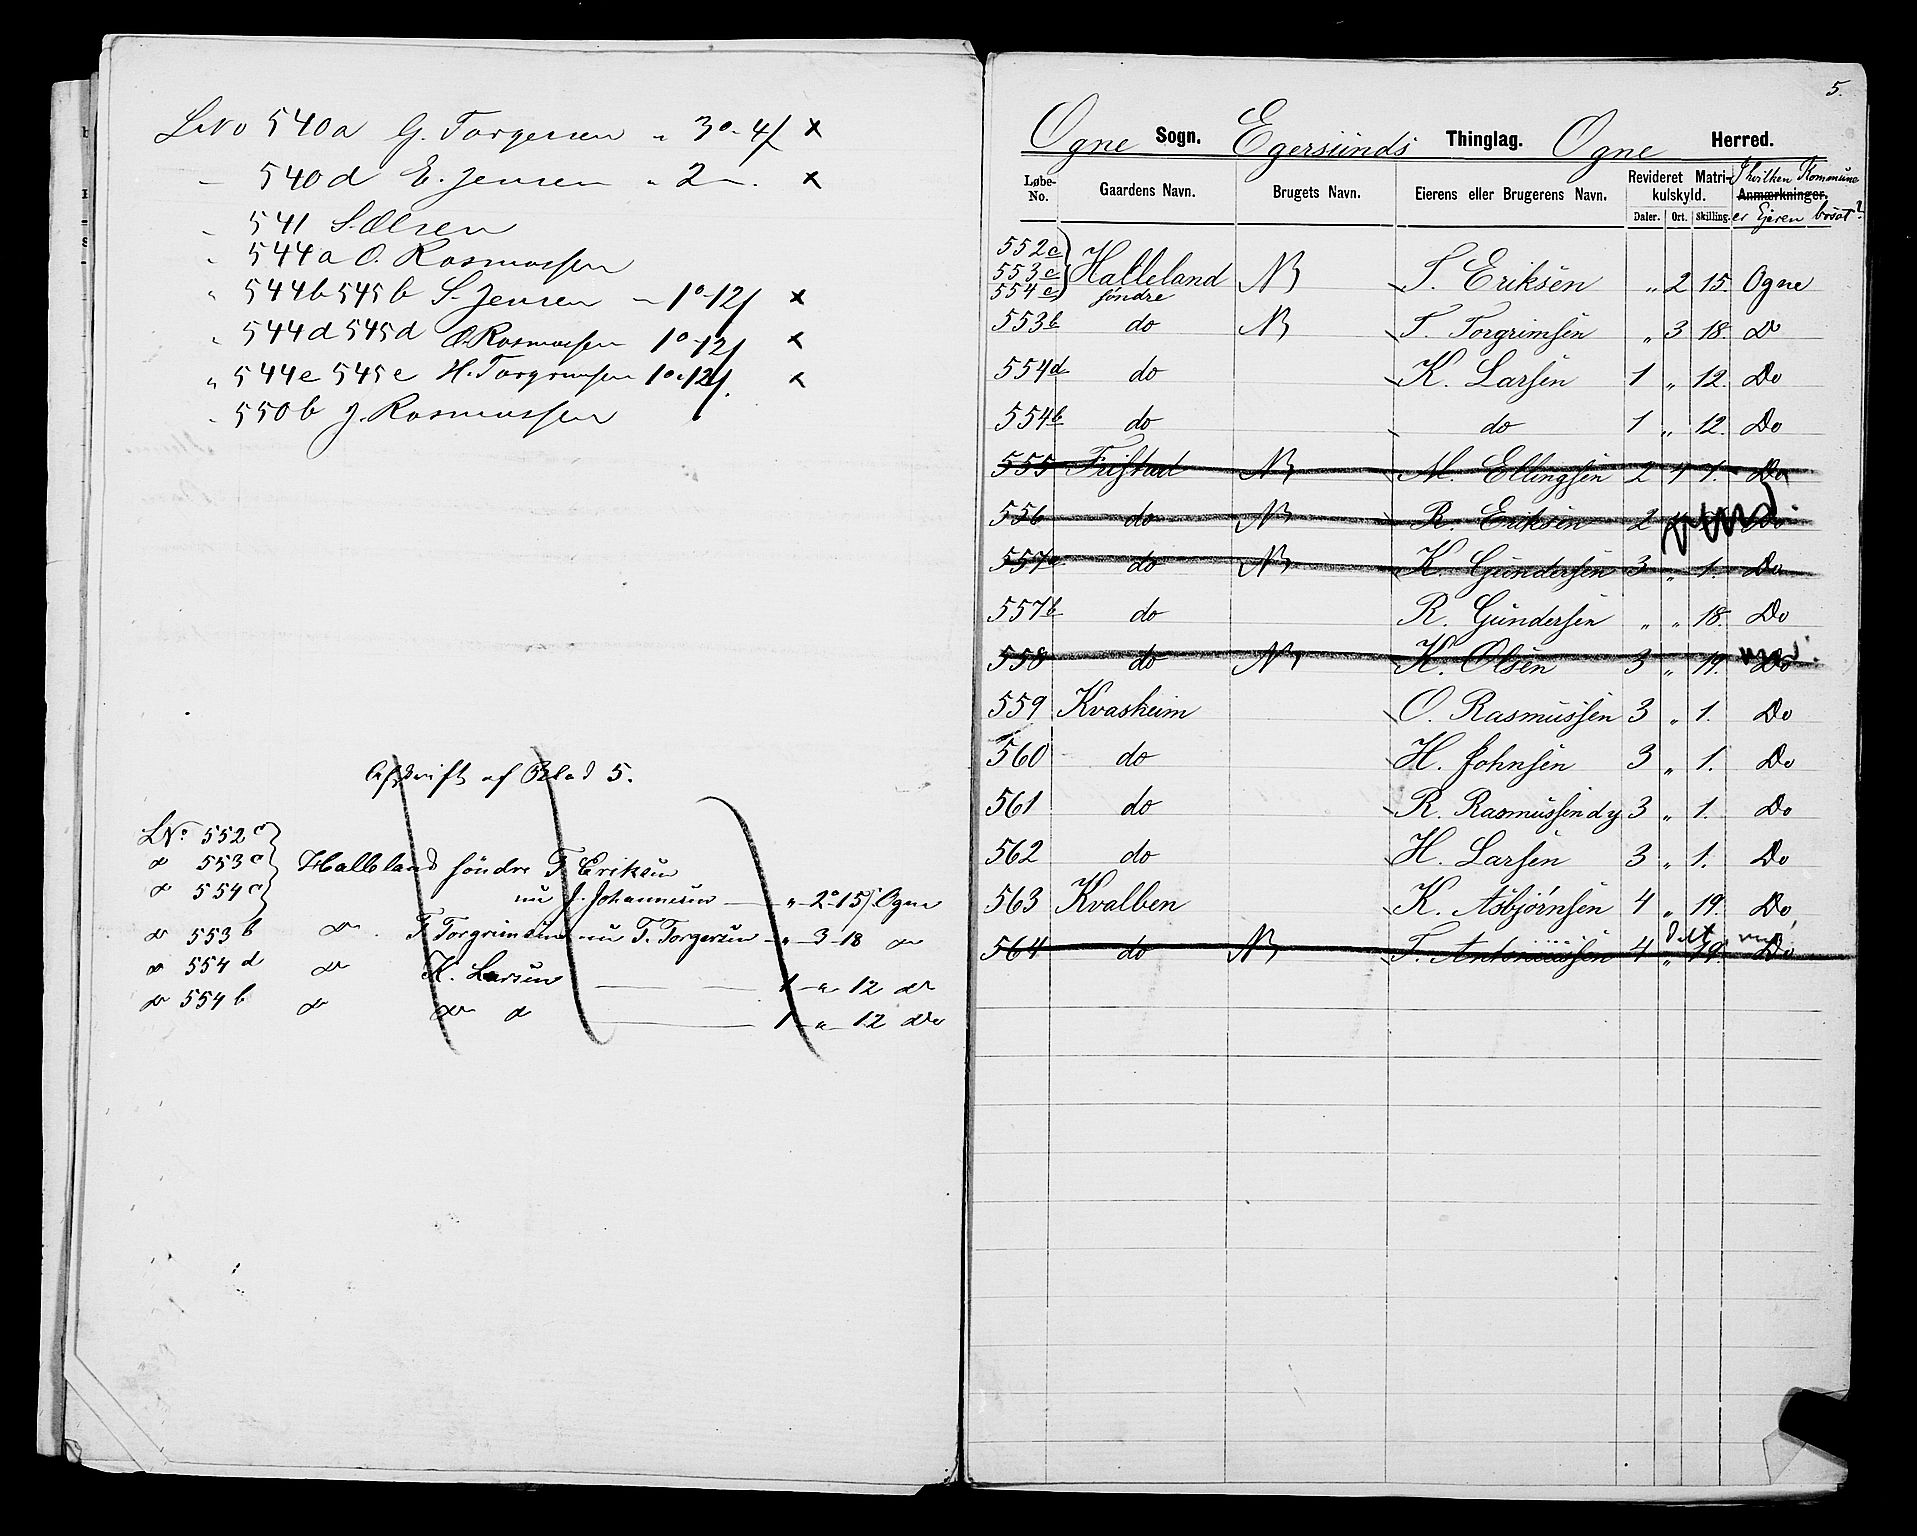 LNo 540a G. Torgersen " 3o-4/ x
" 540d E. Jensen " 2 — " x
" 541 S. Olsen
" 544a O. Rasmussen
" 544b 545b S. Jensen — 1o-12/ x
" 544d 545d O. Rasmussen 1o-12/ x
" 544e 545e H. Torgrimsen 1o-12/. x
" 550b J. Rasmussen
Afskrift af Blad 5.
LNo. 552c
do 553c Halleland søndre T. Eriksen
do 554c nu J. Johannesen — " 2o-15/ Ogne
do 553b do. T. Torgrimsen nu T. Torgersen — " - 3 - 18 do
do 554d do K. Larsen — 1 - " - 12 do
do 554b do do d — 1 - " - 12 do
5.
Ogne Sogn. Egersunds Thinglag. Ogne Herred.
Løbe-No. Gaardens Navn. Brugets Navn. Eierens eller Brugerens Navn. Revideret Matrikulskyld. Daler. Ort. Skilling. Anmærkninger. I hvilken Kommune er Ejeren bosat?
552c
553c Halleland N T. Eriksen " 2 15. Ogne
554c søndre
553b do N T. Torgrimsen " 3 18. Do
554d do K. Larsen 1 " 12. Do
554b do do 1 " 12. Do
555 Fuistad N M. Ellingsen 2 4 7. Do
556 do N R. Eriksen 2 Do
557a do N K. Gundersen 3 " 1. Do
557b do R. Gundersen " " 18. Do
558 do N K. Olsen 3 " 19. Do
559 Kvasheim O. Rasmussen 3 " 1. Do
560 do H. Johnsen 3 " 1. Do
561 do R. Rasmussen dy 3 " 1. Do
562 do H. Larsen 3 " 1. Do
563 Kvalben K. Asbjørnsen 4 " 19. Do
564 do N T. Antoniussen 4 " 19. Do